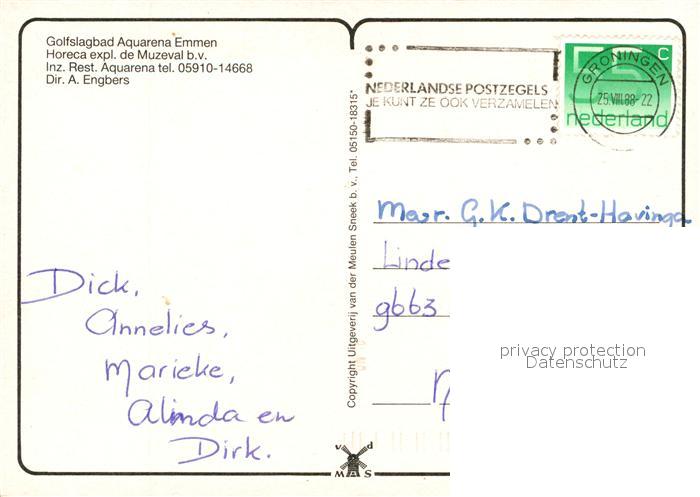 Golfslagbad Aquarena Emmen
Horeca expl. de Muzeval b.v.
Inz. Rest. Aquarena tel. 05910-14668
Dir. A. Engbers
NEDERLANDSE POSTZEGELS
JE KUNT ZE OOK VERZAMELEN
GRONINGEN
25.VIII.88-22
55 C
nederland
Copyright Uitgeverij van der Meulen Sneek b.v., Tel. 05150-18315*
G.K. Drent-Havinga
Linde
9663
privacy protection
Datenschutz
Dick,
Annelies,
Marieke,
Alinda en
Dirk.
v d
MAS